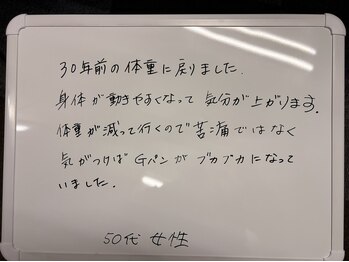 30年前の体重に戻りました.
身体が動きやすくなって 気分が上がります.
体重が減って行くので苦痛ではなく
気がつけば Gパンが ブカブカになって
いました.
50代 女性